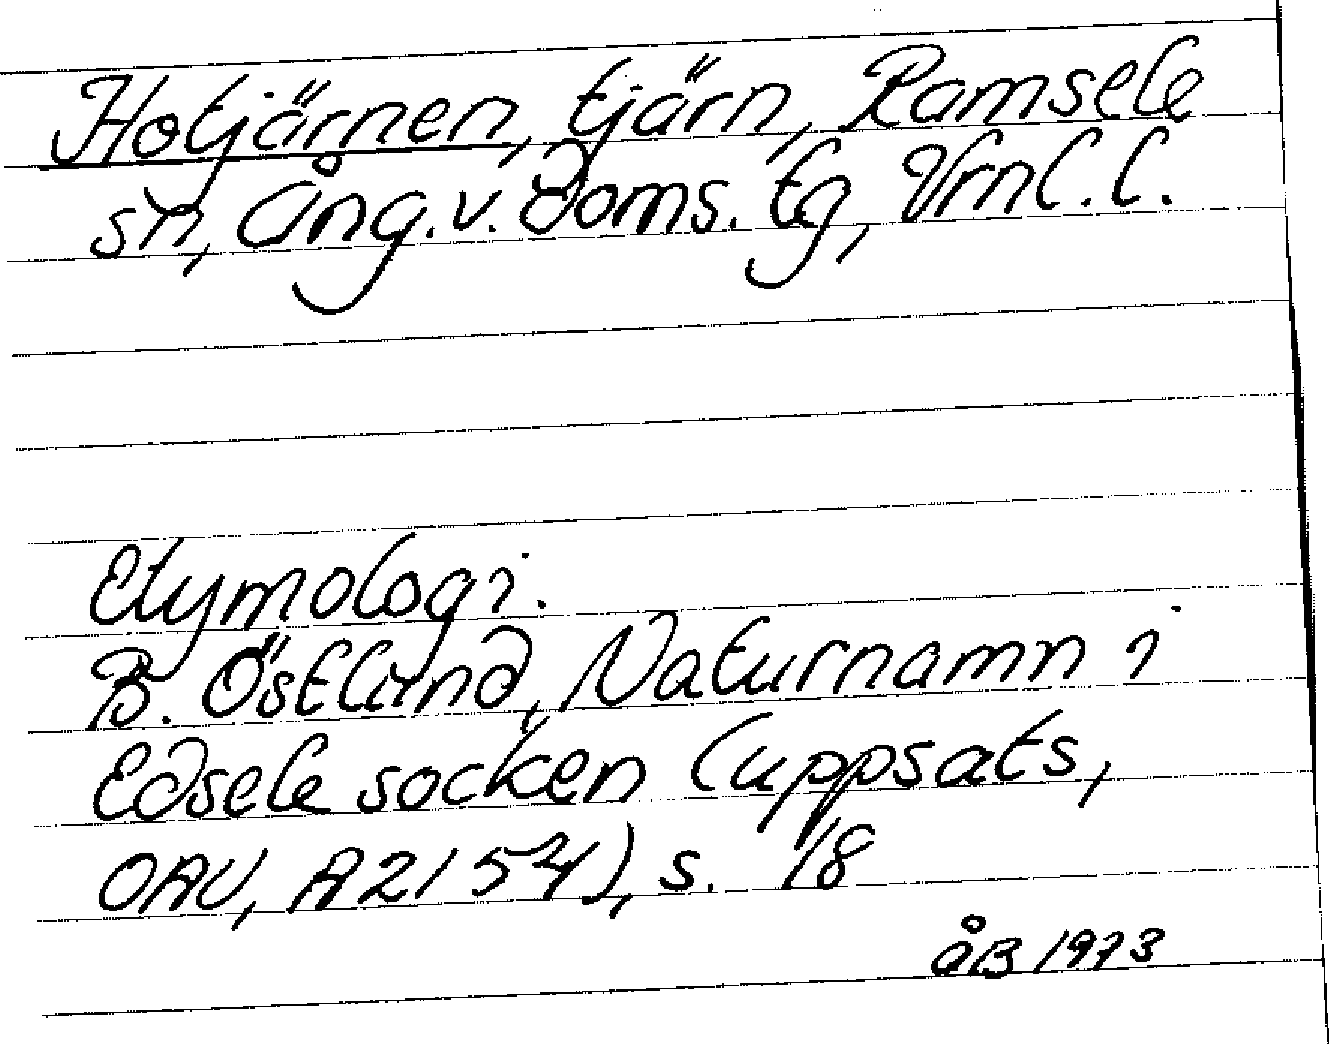 Hotjärnen, tjärn, Ramsele
sn, Ång. v. Doms. tg, Vrnl. l.
Etymologi.
B. Östlund, Naturnamn i
Edsele socken (uppsats,
OAU, A 2154), s. 18
åB 1973